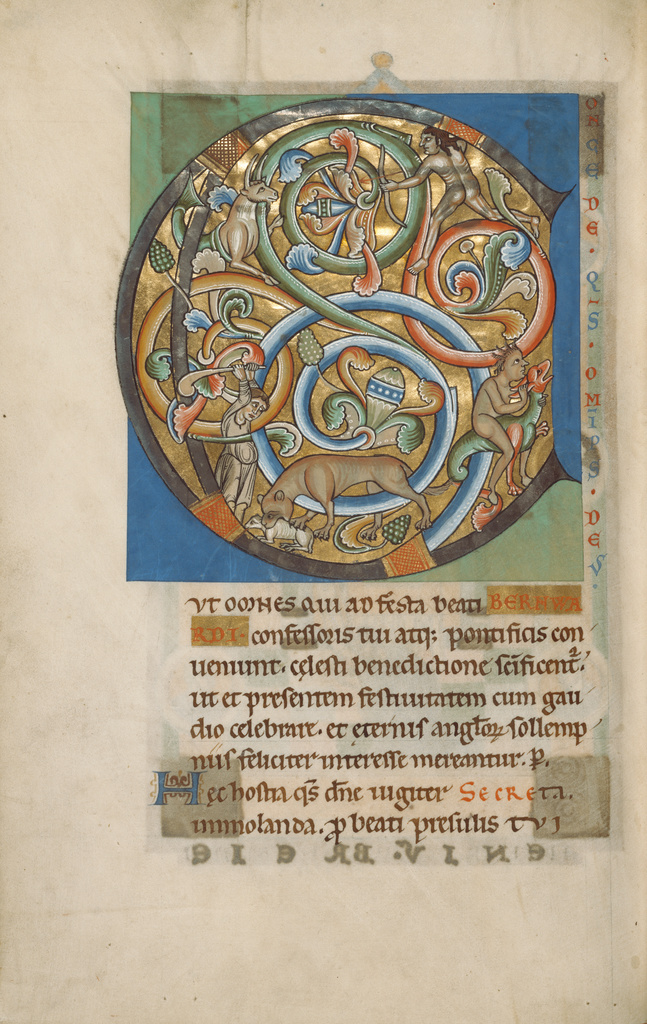 C
ONCEDE · Q̄S · OM̄PS · DEVS
VT OMNES QUI AD festa beati BERNWA
RDI · confessoris tui atq; pontificis con
ueniunt · cęlesti benedictione sc̄ificent᷑ ·
ut et presentem festiuitatem cum gau
dio celebrare · et eternis angl̄oꝝ sollemp
niis feliciter interesse mereantur · P.
Hęc hostia q̄s dn̄e iugiter SECRETA.
immolanda · ꝓ beati presulis TVI